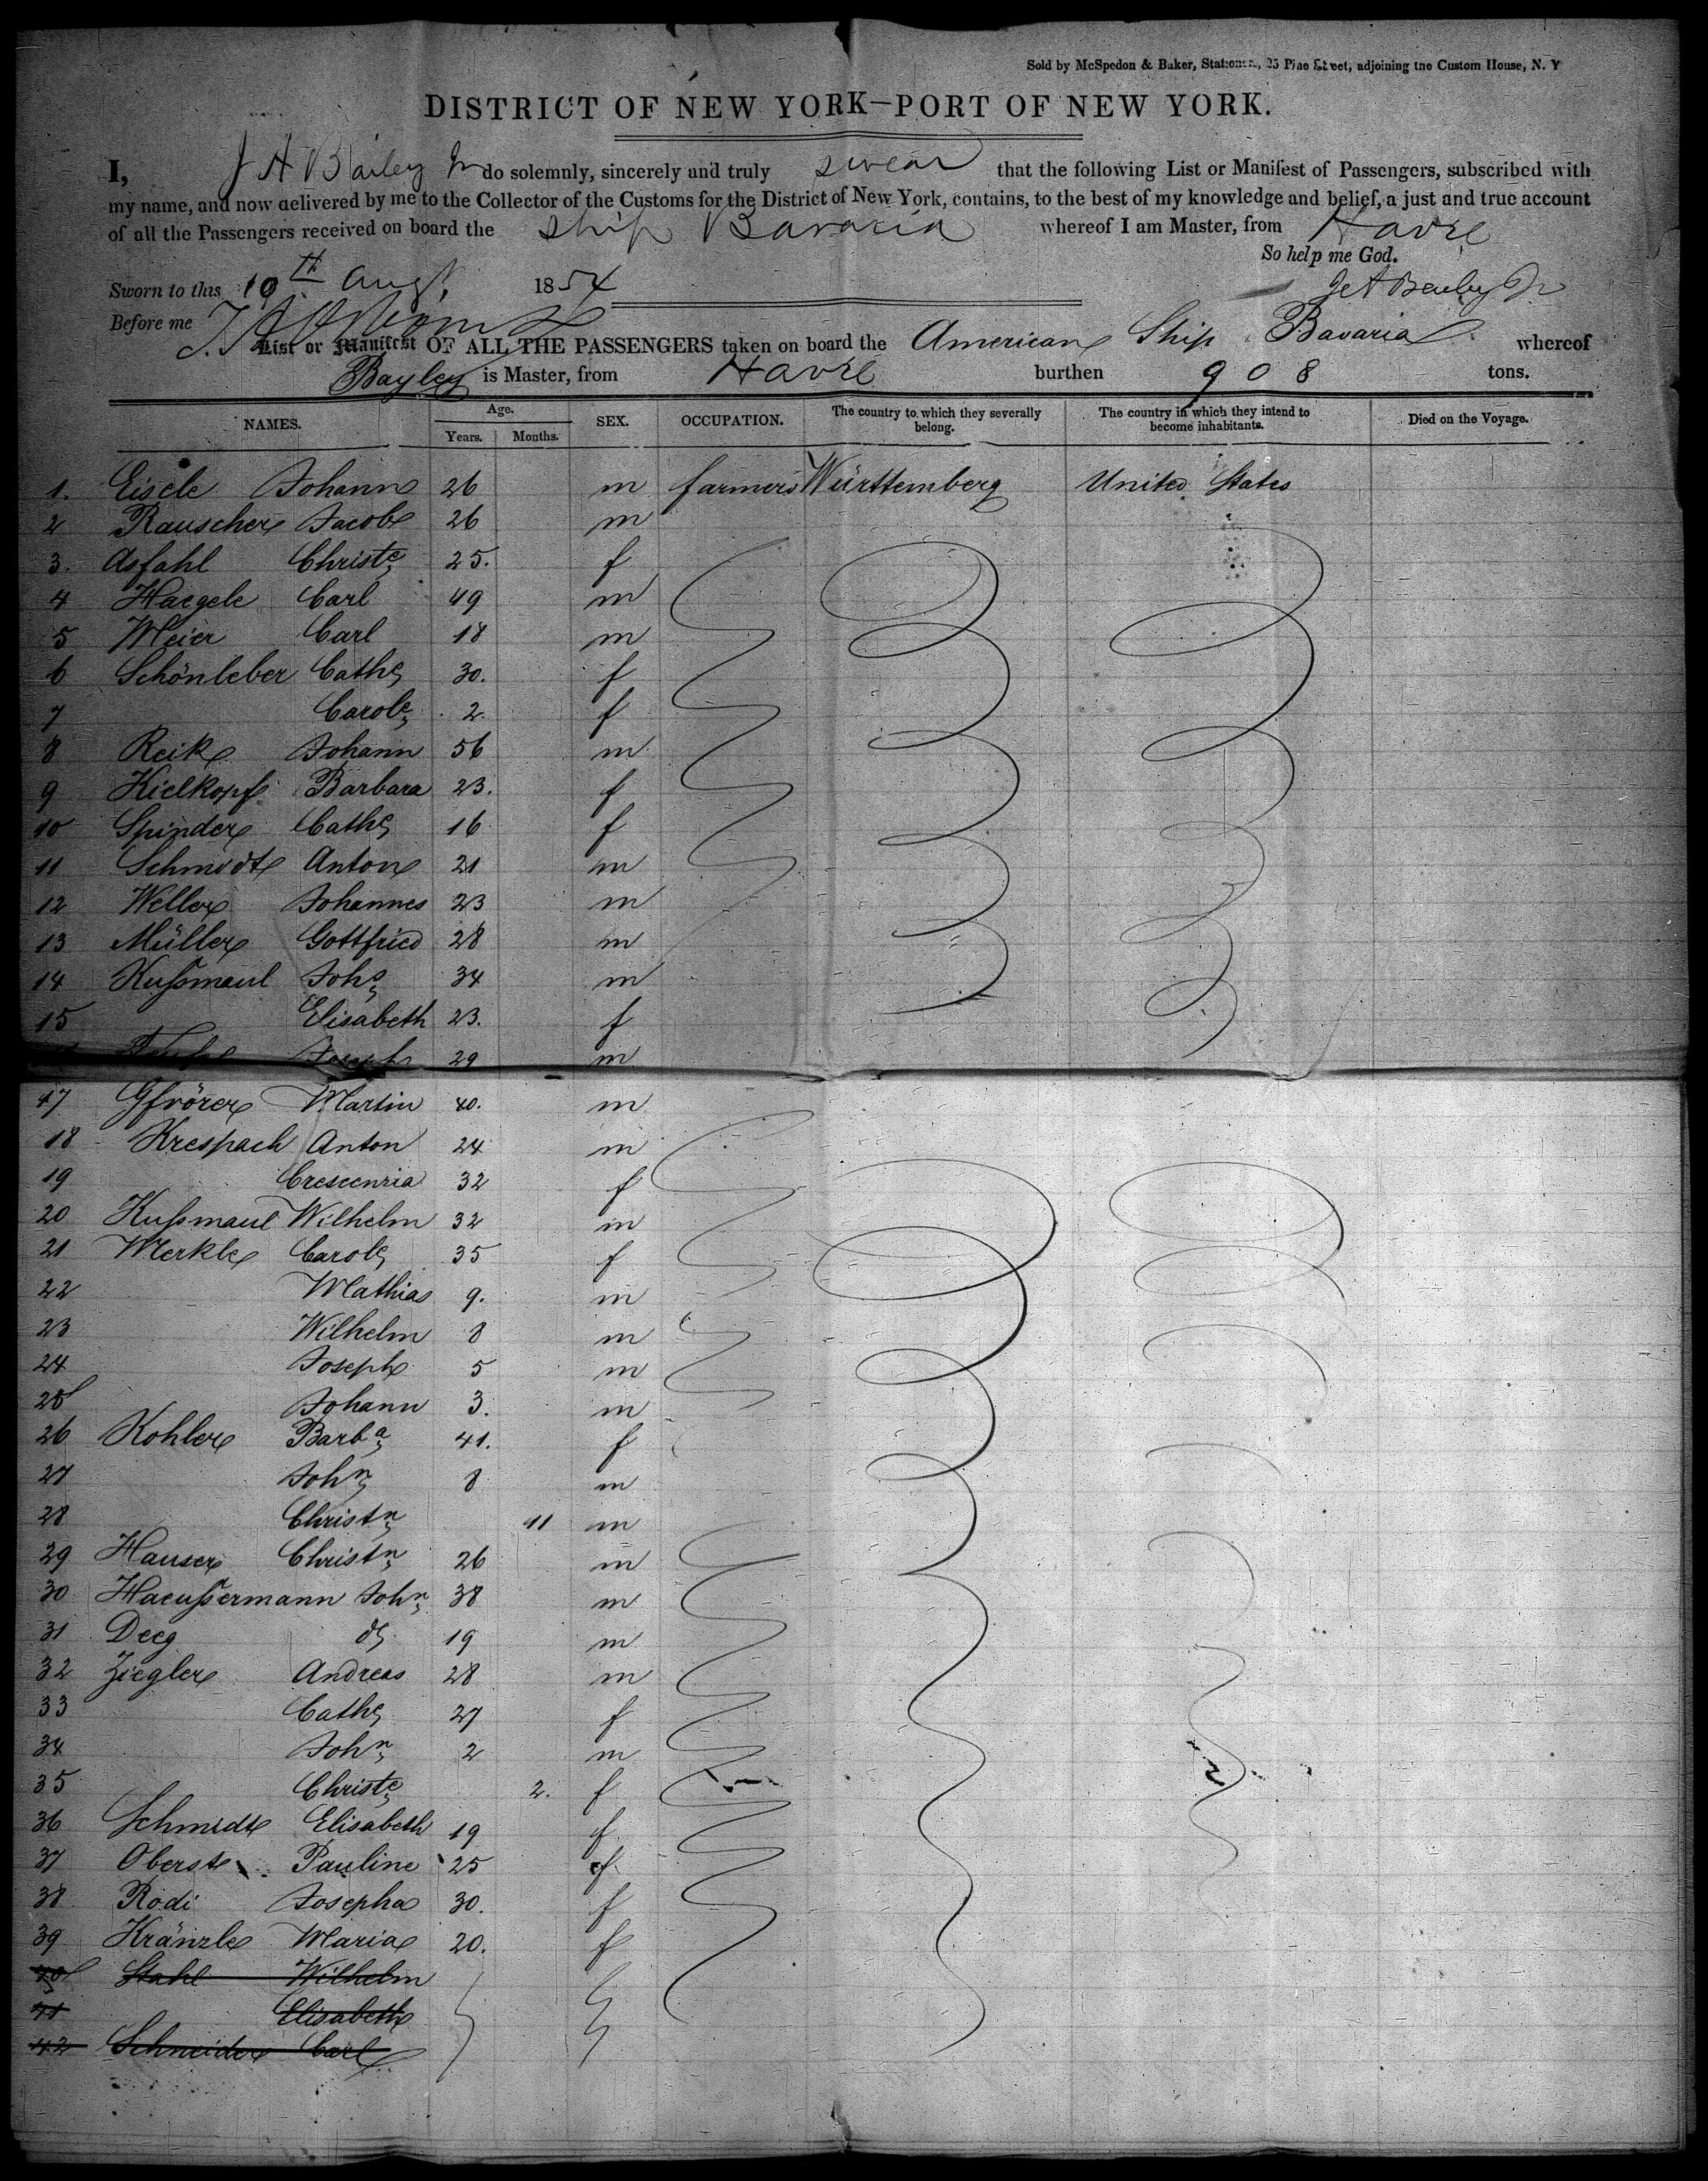 Sold by McSpedon & Baker, Stationers, 25 Pine Street, adjoining the Custom House, N. Y
DISTRICT OF NEW YORK—PORT OF NEW YORK.
I, J A Bailey Jr do solemnly, sincerely and truly swear that the following List or Manifest of Passengers, subscribed with
my name, and now delivered by me to the Collector of the Customs for the District of New York, contains, to the best of my knowledge and belief, a just and true account
of all the Passengers received on board the Ship Bavaria whereof I am Master, from Havre
So help me God.
Sworn to this 10th Augt. 1854
Before me
List or Manifest OF ALL THE PASSENGERS taken on board the American Ship Bavaria whereof
Bayley is Master, from Havre burthen 908 tons.
NAMES. Age. Years. Months. SEX. OCCUPATION. The country to which they severally belong. The country in which they intend to become inhabitants. Died on the Voyage.
1. Eisele Johann 26 m farmers Württemberg United States
2 Rauscher Jacob 26 m
3. Asfahl Christe 25. f
4 Haegele Carl 49 m
5 Meier Carl 18 m
6 Schönleber Cathe 30. f
7 Carole 2 f
8 Reik Johann 56 m
9 Kielkopf Barbara 23. f
10 Spinder Cathe 16 f
11 Schmidt Anton 21 m
12 Weller Johannes 23 m
13 Müller Gottfried 28 m
14 Kußmaul Johs 34 m
15 Elisabeth 23. f
Joseph 29 m
17 Gfrörer Martin 40. m
18 Krespach Anton 24 m
19 Crescenzia 32 f
20 Kußmaul Wilhelm 32 m
21 Merkle Carole 35 f
22 Mathias 9. m
23 Wilhelm 8 m
24 Joseph 5 m
25 Johann 3. m
26 Kohler Barba 41. f
27 John 8 m
28 Christn 11 m
29 Hauser Christn 26 m
30 Haeußermann John 38 m
31 Deeg do 19 m
32 Ziegler Andreas 28 m
33 Cathe 27 f
34 John 2 m
35 Christe 2. f
36 Schmidt Elisabeth 19 f
37 Oberst Pauline 25 f
38 Rodi Josepha 30. f
39 Kränzle Maria 20. f
40 Stahl Wilhelm
41 Elisabeth
42 Schneider Carl